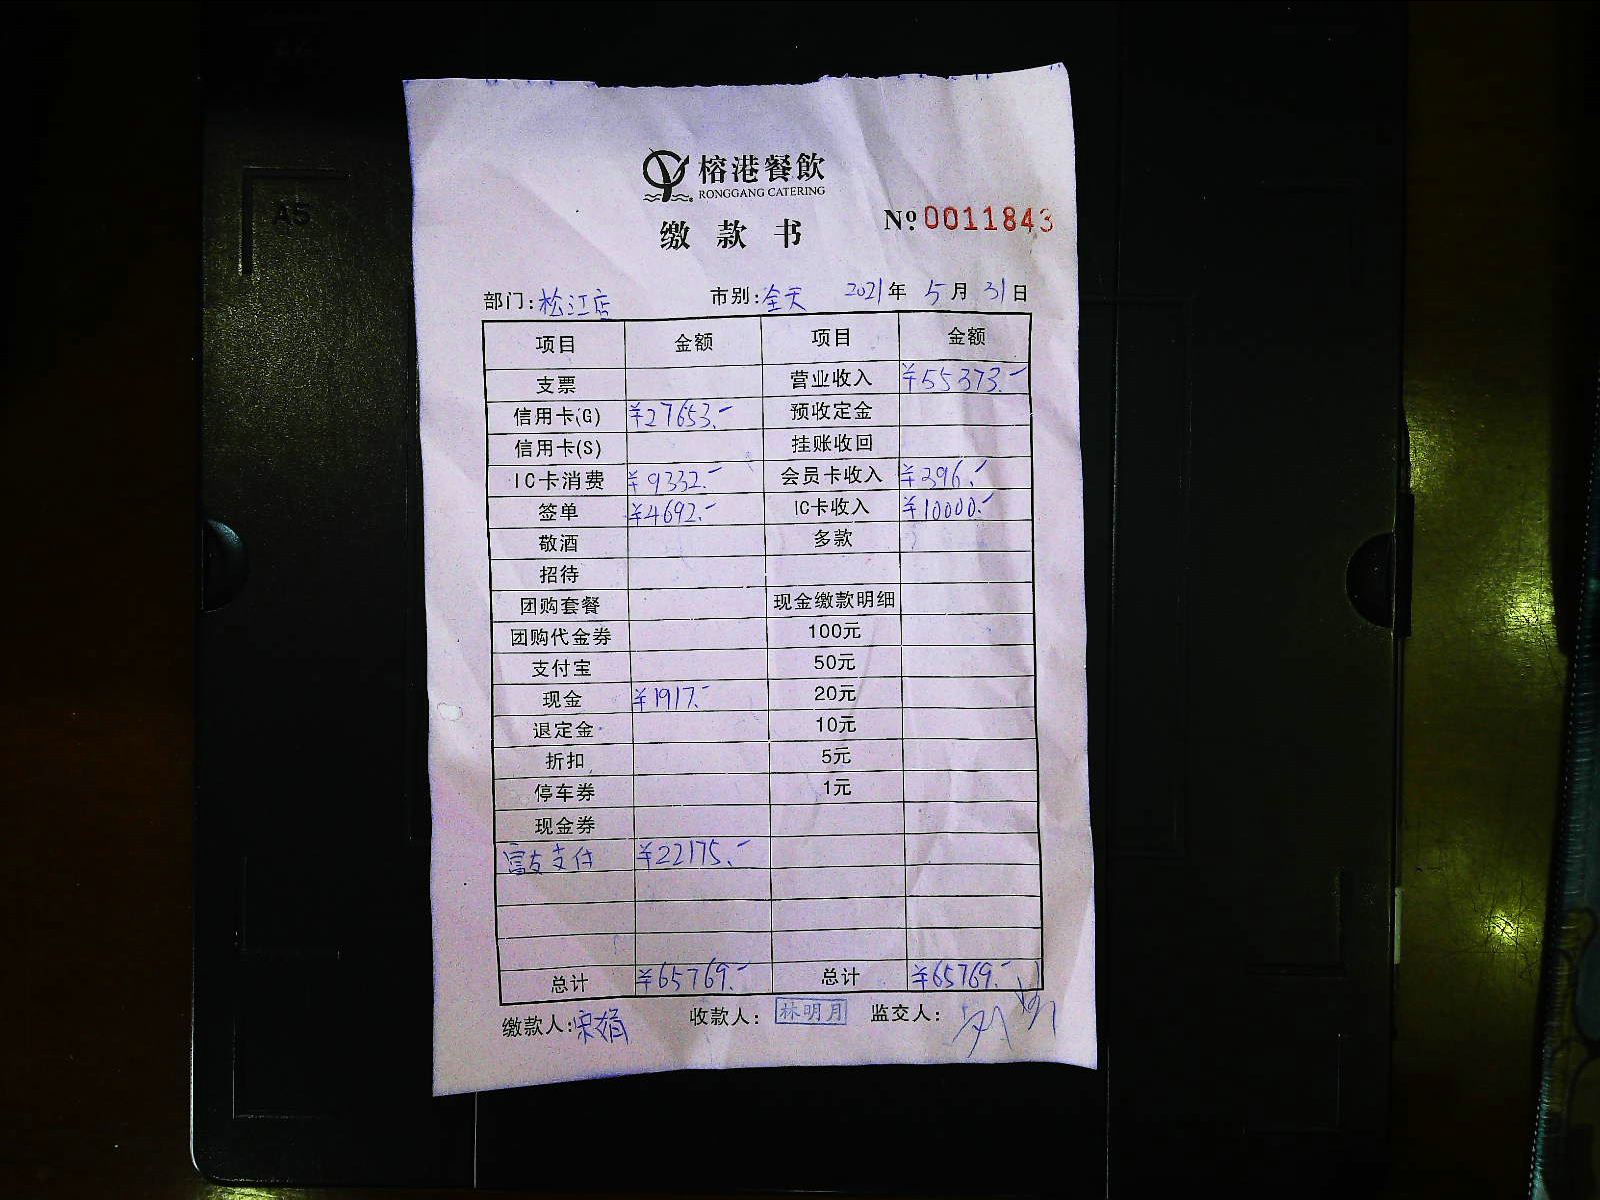 A5
榕港餐飲
RONGGANG CATERING
缴款书 № 0011843
部门:松江店 市别:全天 2021年5月31日
项目 金额 项目 金额
支票 营业收入 ¥55373.-
信用卡(G) ¥27653.- 预收定金
信用卡(S) 挂账收回
IC卡消费 ¥9332.- 会员卡收入 ¥396.-
签单 ¥4692.- IC卡收入 ¥10000.-
敬酒 多款
招待
团购套餐 现金缴款明细
团购代金券 100元
支付宝 50元
现金 ¥1917.- 20元
退定金 10元
折扣 5元
停车券 1元
现金券
富友支付 ¥22175.-
总计 ¥65769.- 总计 ¥65769.-
缴款人:宋娟 收款人:林明月 监交人: